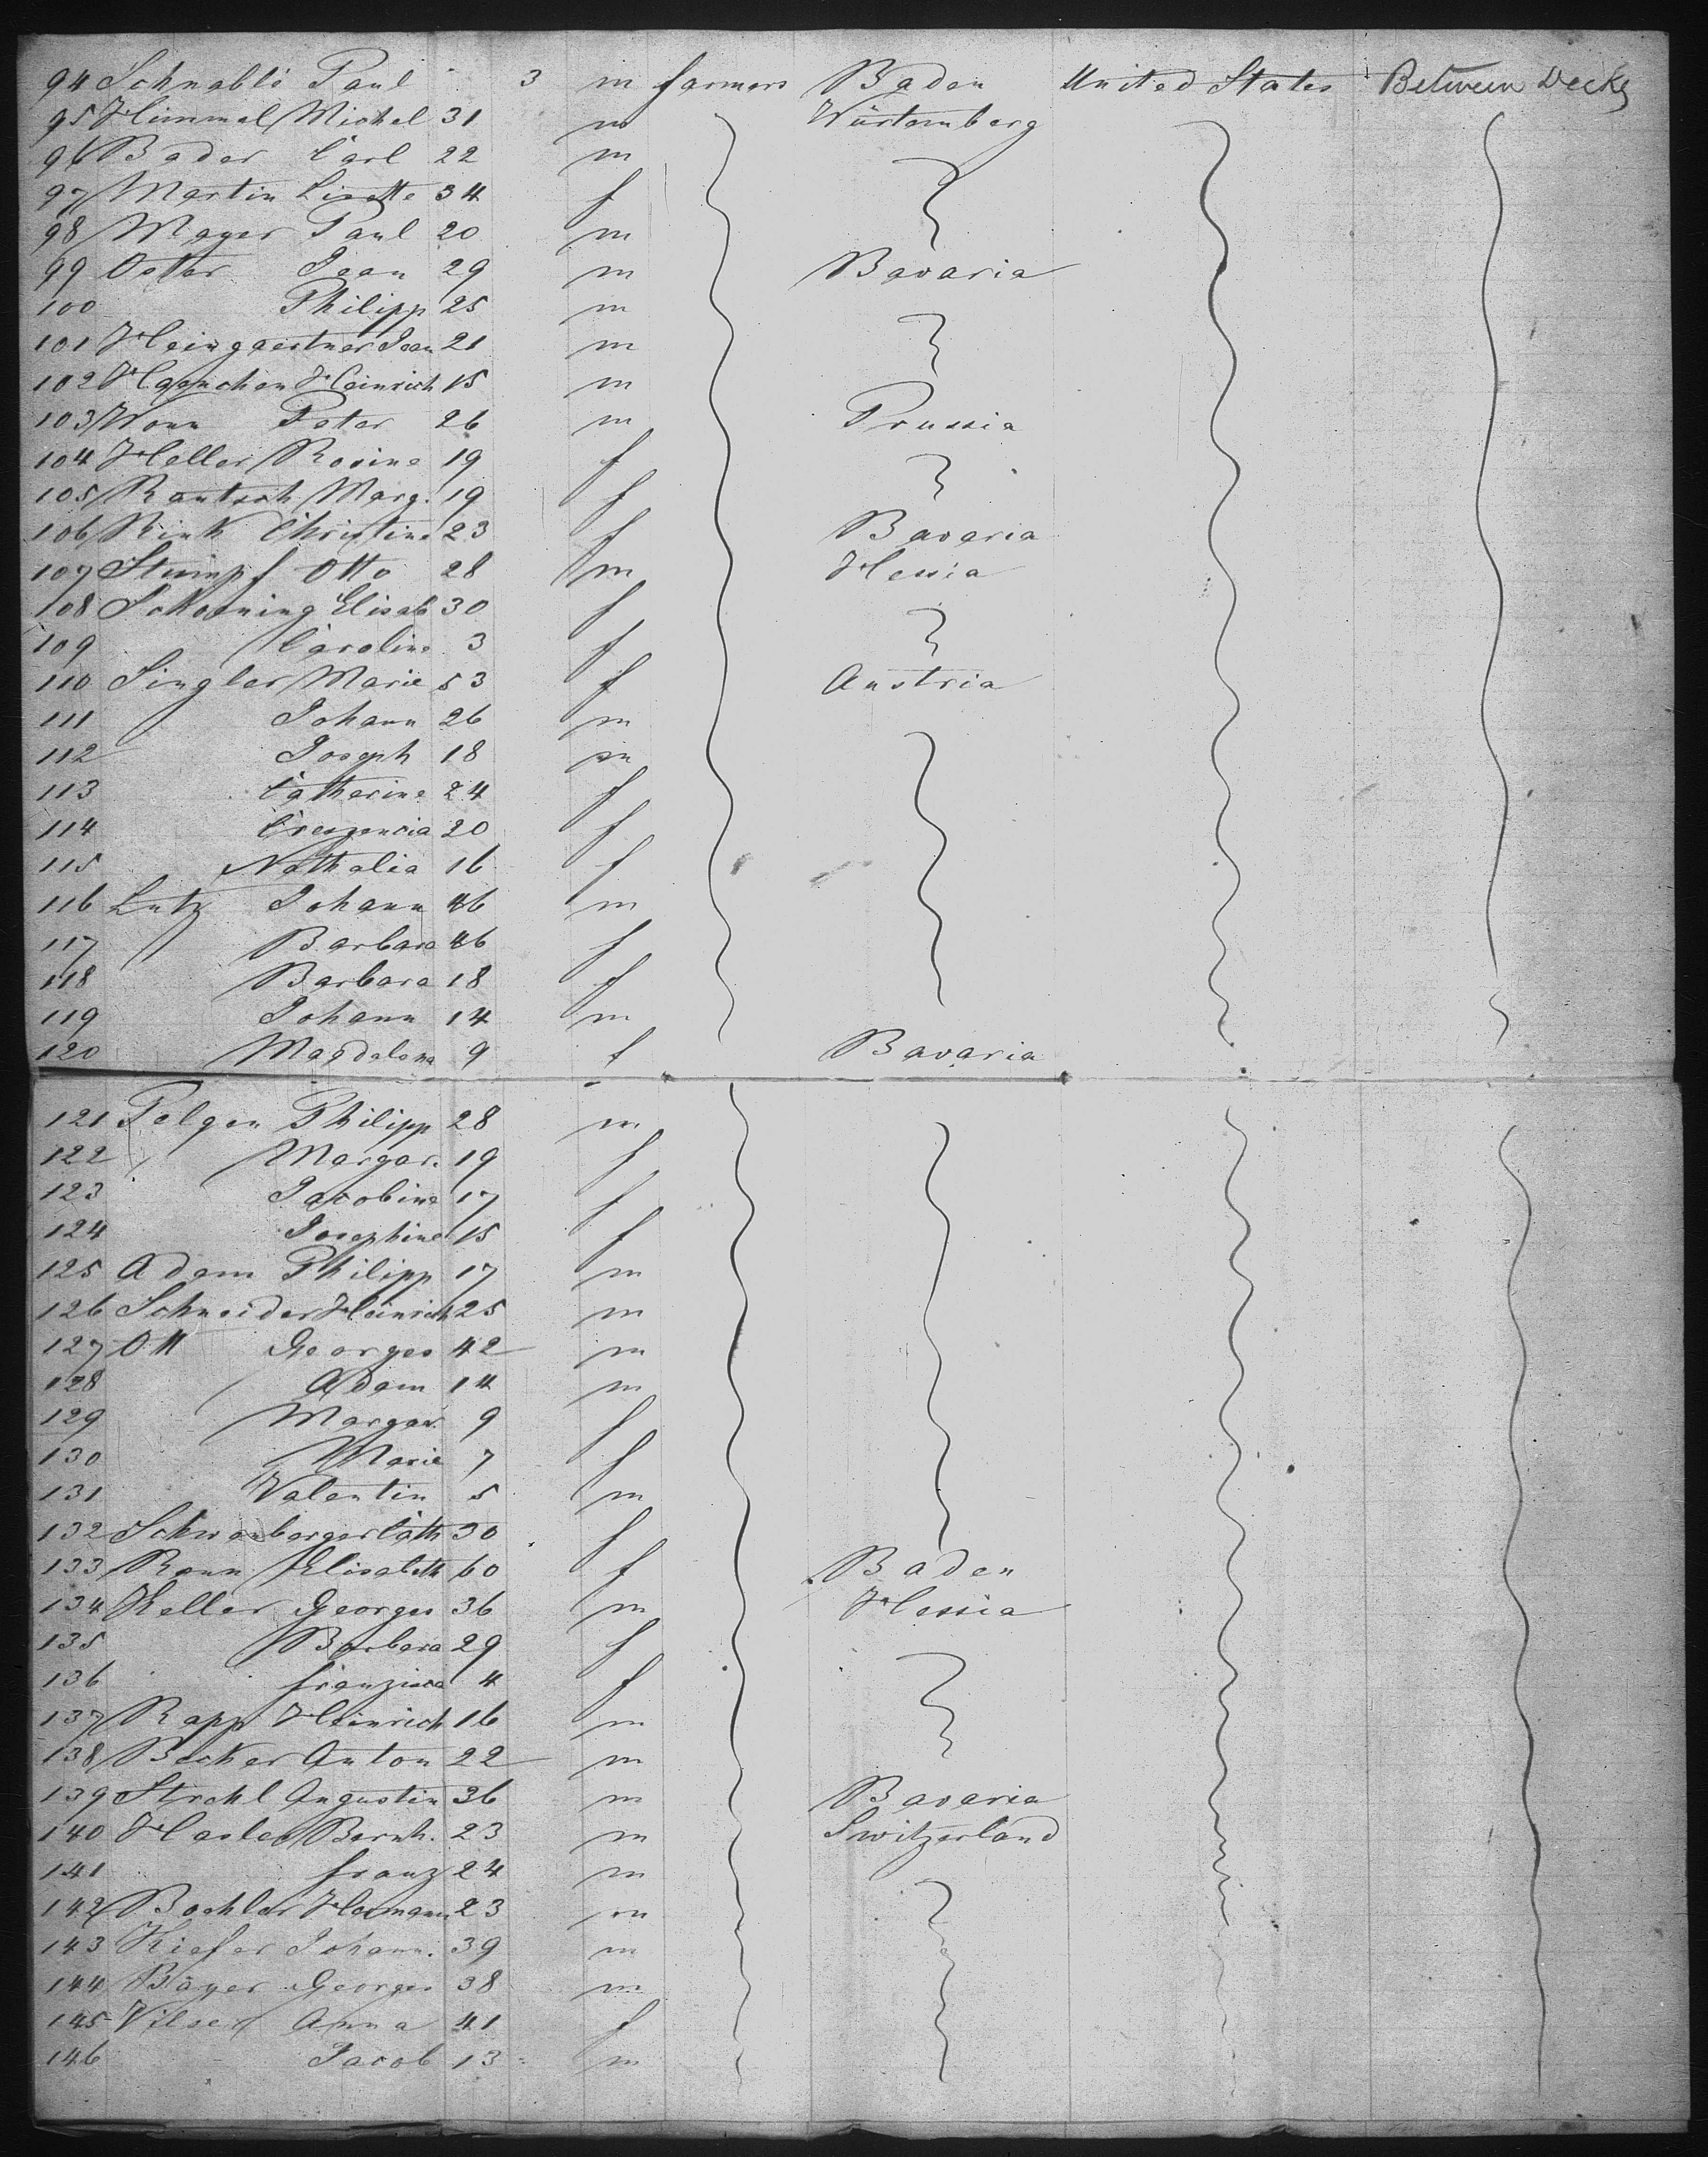 94 Schnabli Paul 3 m farmers Baden United States Between Decks
95 Himmel Michel 31 m Würtemberg
96 Bader Carl 22 m
97 Martin Lisette 34 f
98 Mayer Paul 20 m
99 Oster Jean 29 m Bavaria
100 Philipp 25 m
101 Heingaertner Jean 21 m
102 Haenchen Heinrich 15 m
103 Wonn Peter 26 m Prussia
104 Heller Rosine 19 f
105 Rautsch Marg. 19 f
106 Rink Christine 23 f Bavaria
107 Stumpf Otto 28 m Hessia
108 Elisab 30 f
109 Caroline 3 f
110 Singler Marie 53 f Austria
111 Johann 26 m
112 Joseph 18 m
113 Catherine 24 f
114 Crespencia 20 f
115 Nathalia 16 f
116 Lutz Johann 46 m
117 Barbara 46 f
118 Barbara 18 f
119 Johann 14 m
120 Magdalena 9 f Bavaria
121 Pelgen Philipp 28 m
122 Margar. 19 f
123 Jacobine 17 f
124 Josephine 15 f
125 Adam Philipp 17 m
126 Schneider Heinrich 25 m
127 Ott Georges 42 m
128 Adam 14 m
129 Margar. 9 f
130 Marie 7 f
131 Valentin 5 m
132 Schwanberger Cath 30 f
133 Renn Elisabeth 60 f Baden
134 Keller Georges 36 m Hessia
135 Barbara 29 f
136 franzisca 4 f
137 Rapp Heinrich 16 m
138 Becker Anton 22 m
139 Strehl Augustin 36 m Bavaria
140 Hasler Bernh. 23 m Switzerland
141 franz 24 m
142 Bechler Hermann 23 m
143 Kiefer Johann. 39 m
144 Bayer Georges 38 m
145 Vilser Anna 41 f
146 Jacob 13 m